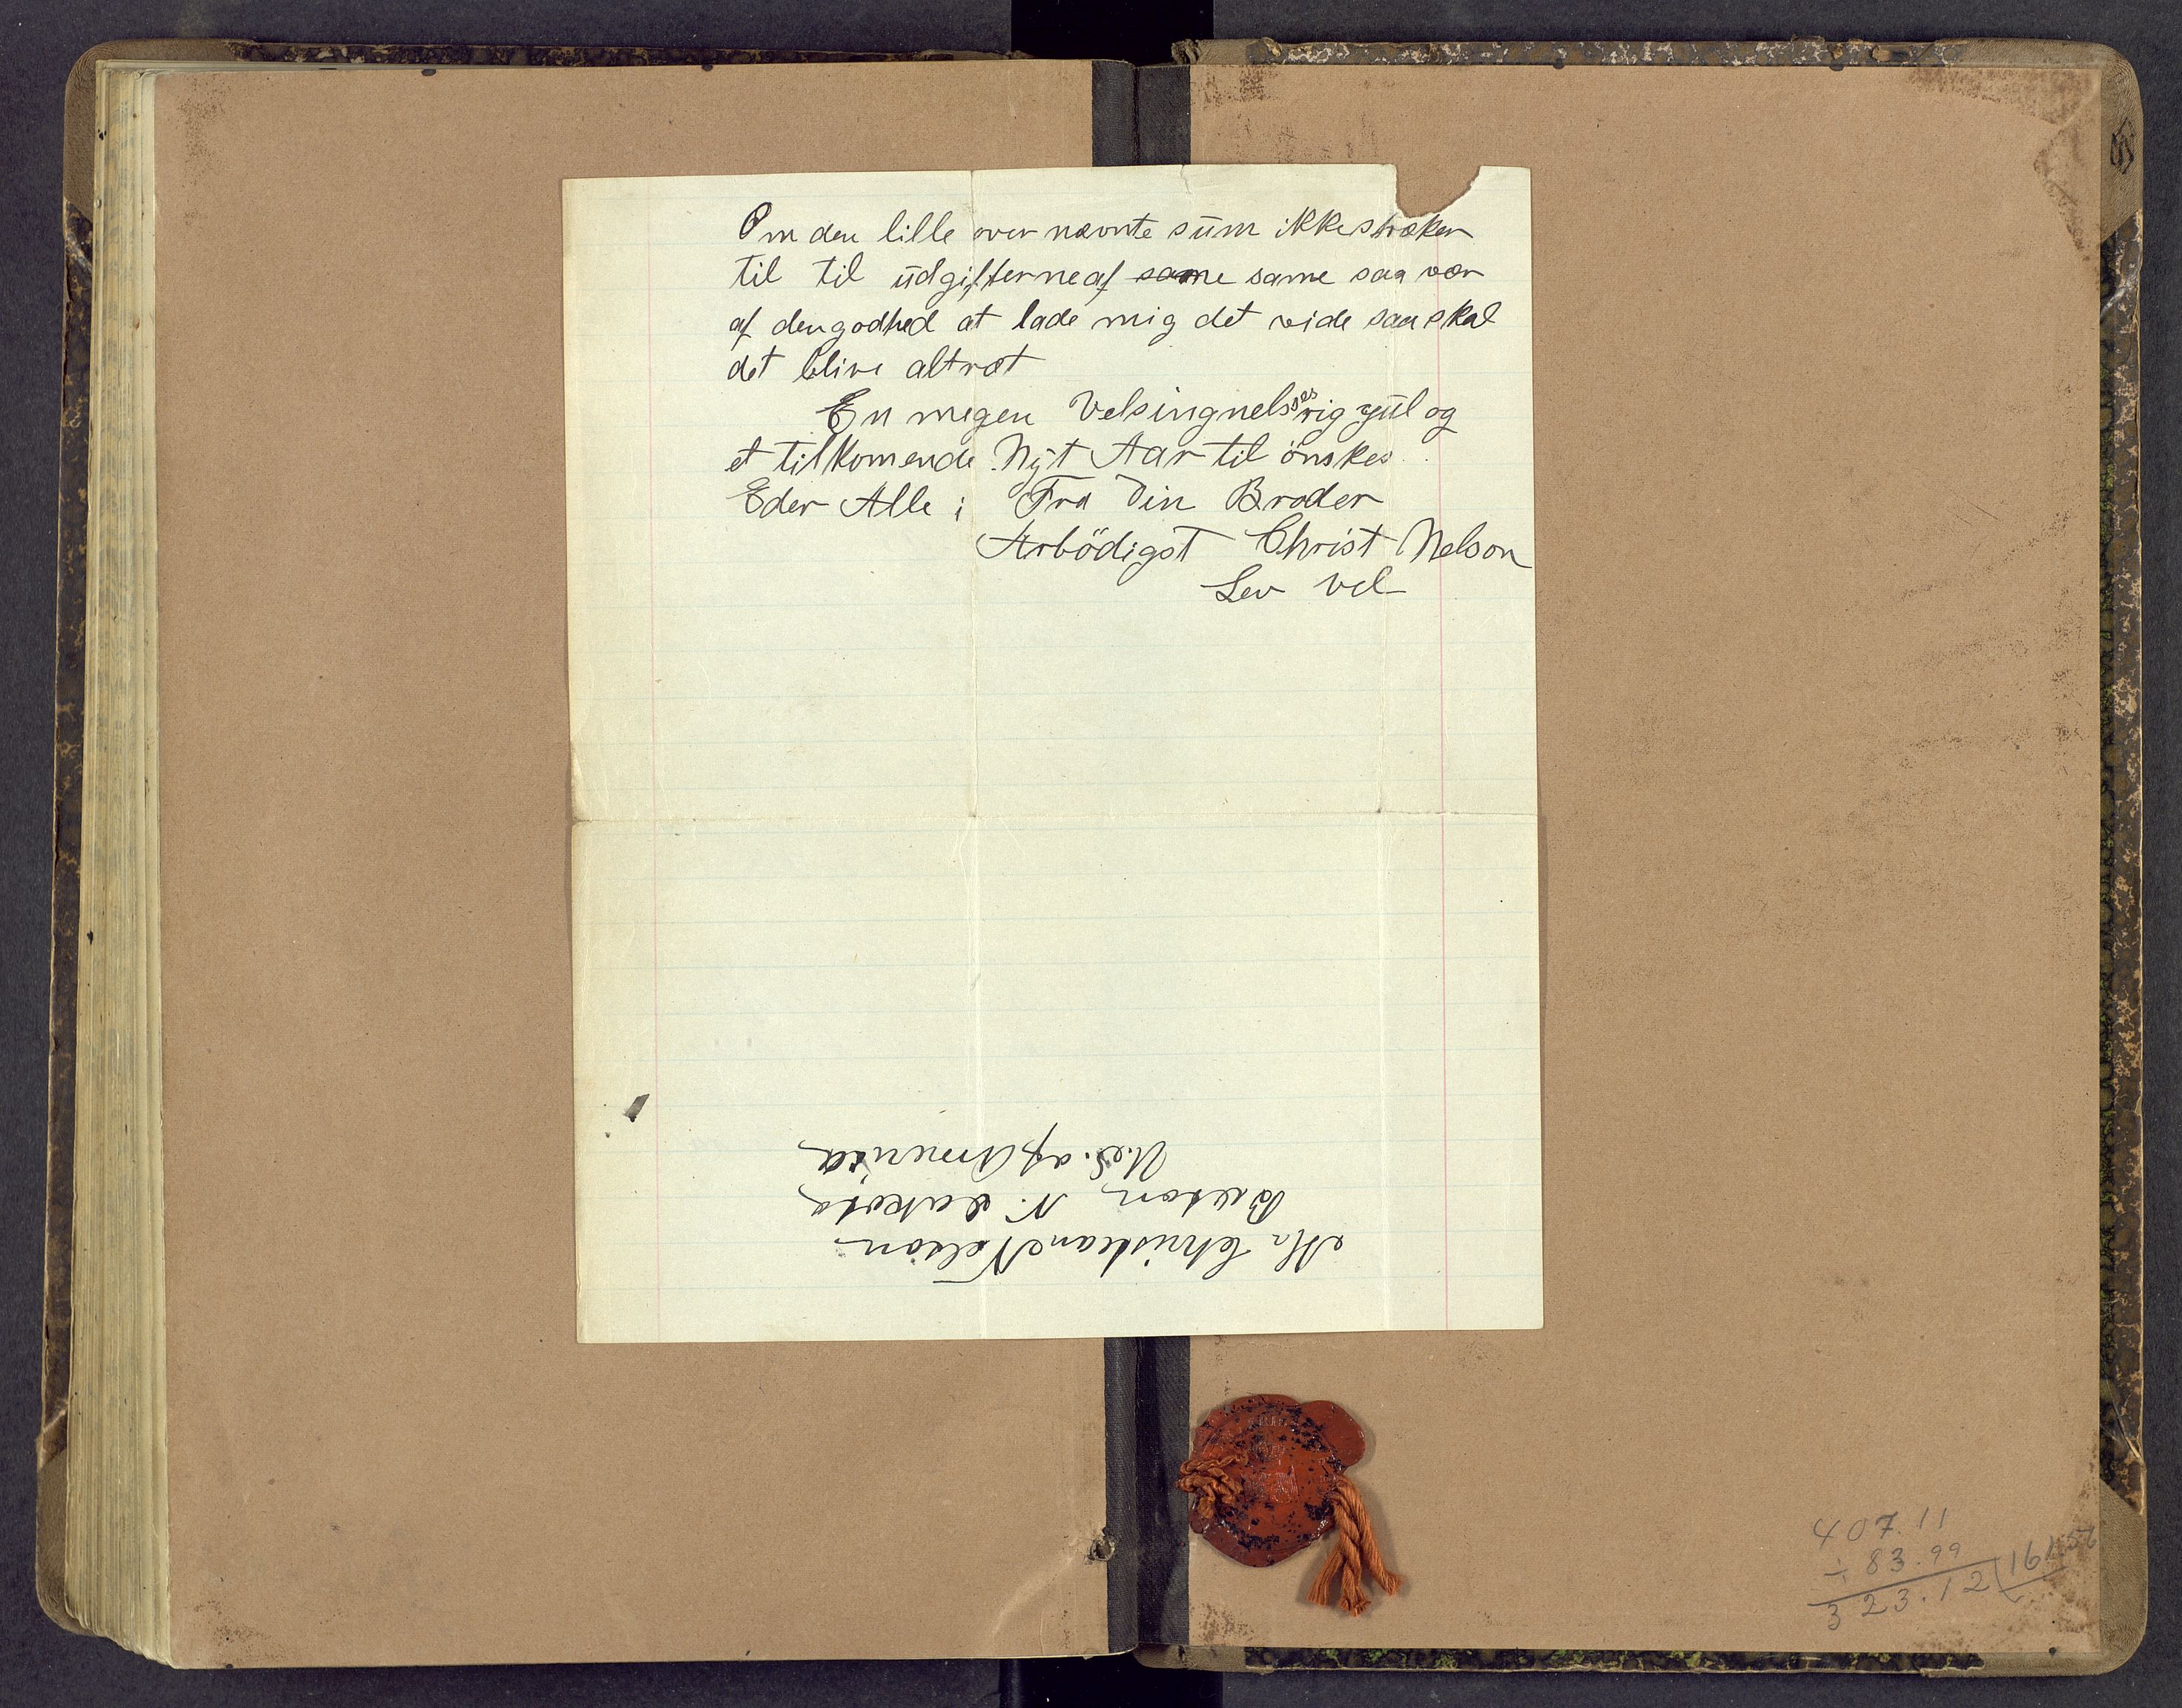 Om den lille over nævnte sūm ikke strœken
til til ūdgifterne af same same saa vœr
af den godhed at lade mig det vide saa skal
det blive altrœt
En megen Velsingnelsses rig jūl og
et tilkomende Nÿt Aar til önskes
Eder Alle i Fra Din Broder
Ærbödigst Christ Nelson
Lev vel
Mr Christean Nelson
Buxton N. Dakota
U.S. af America
407.11
÷ 83.99
323.12 161.56